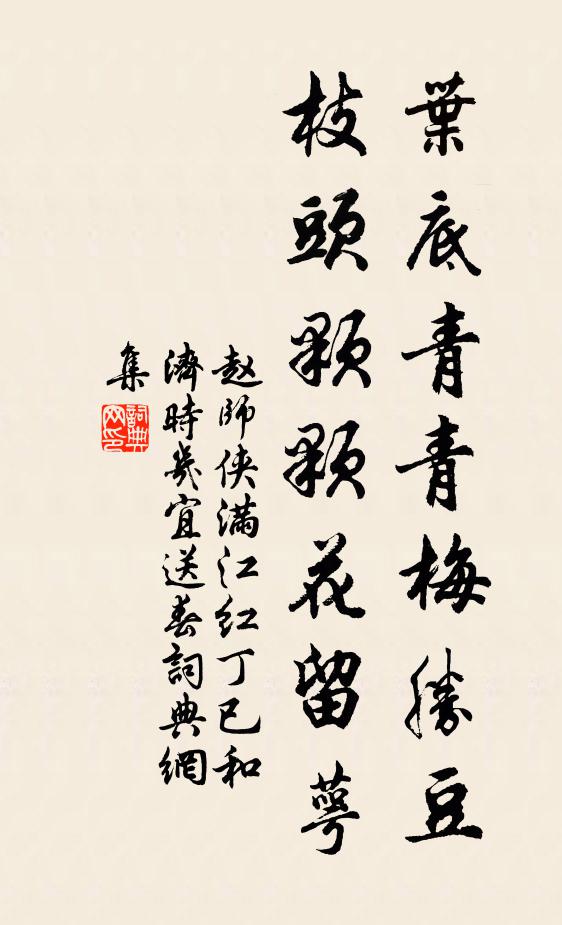 葉底青青梅勝豆
枝頭顆顆花留萼
赵師侠满江红丁巳和
濟時幾宜送春詞典網
集
詞典网印